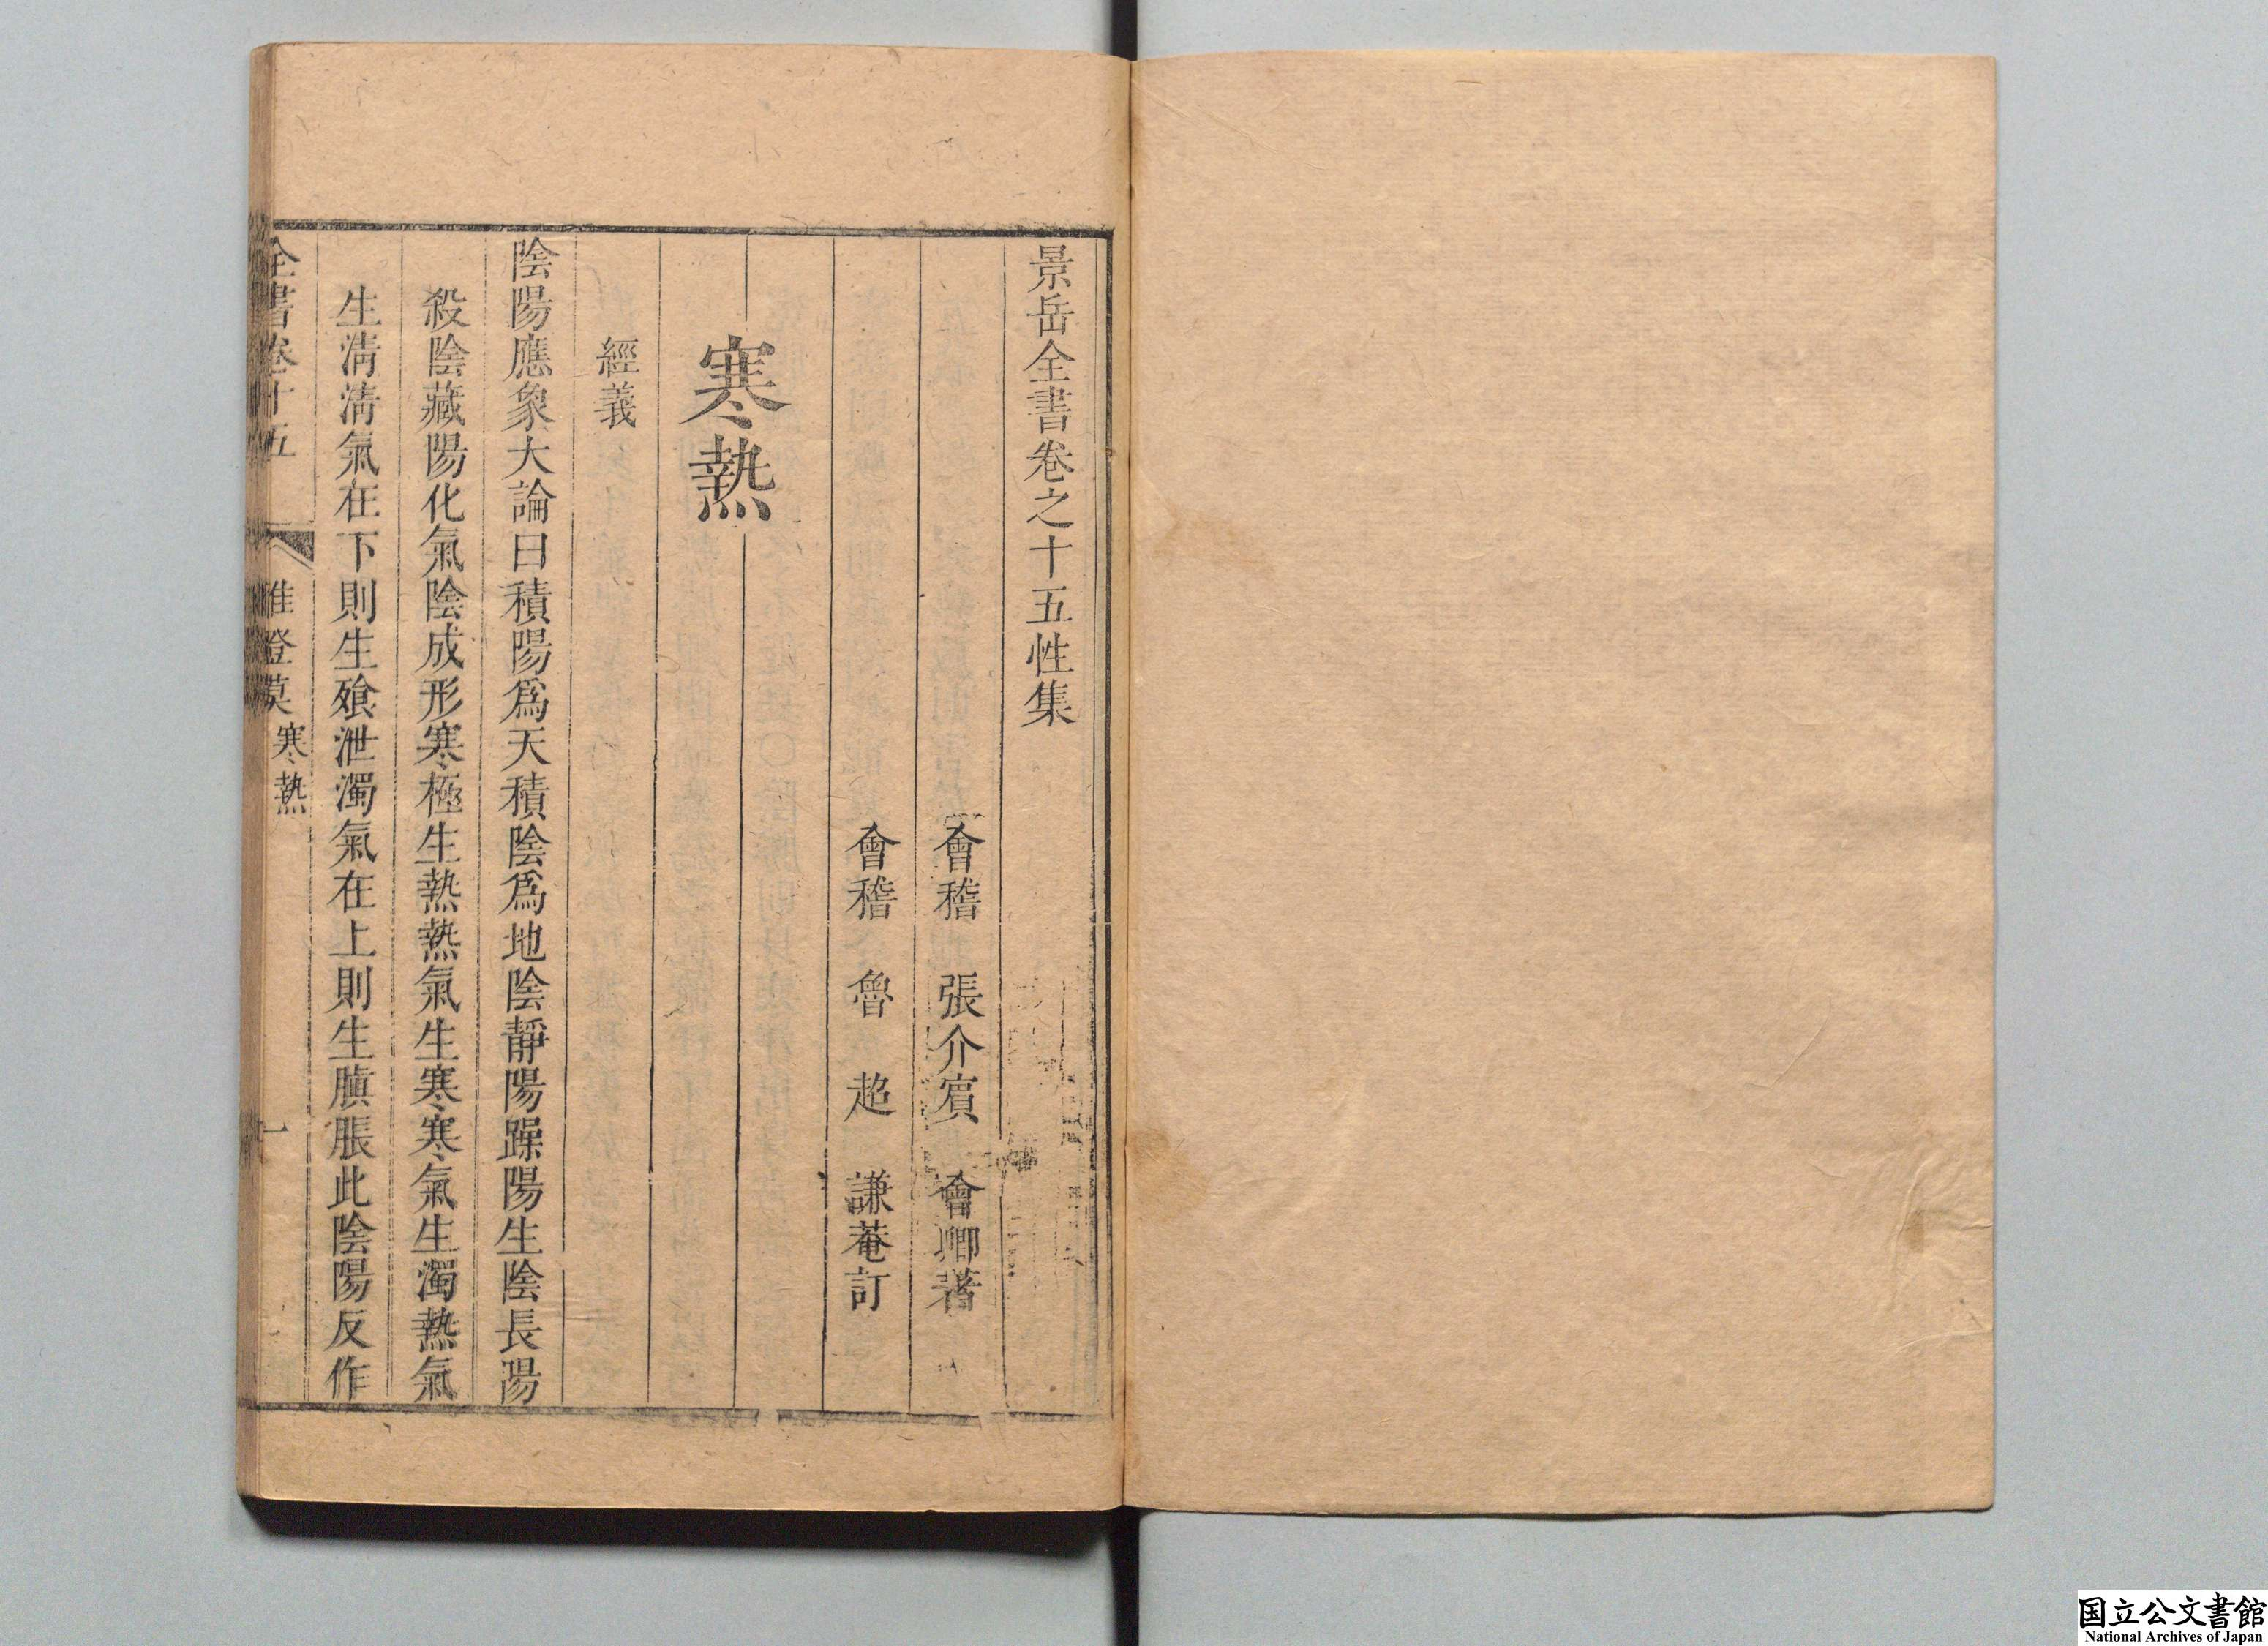 景岳全書卷之十五性集
會稽 張介賓 會卿著
會稽 魯超 謙菴訂
寒熱
經義
陰陽應象大論曰積陽爲天積陰爲地陰靜陽躁陽生陰長陽
殺陰藏陽化氣陰成形寒極生熱熱氣生寒寒氣生濁熱氣
生淸淸氣在下則生飱泄濁氣在上則生䐜脹此陰陽反作
全書卷十五 雜證謨 寒熱 一
国立公文書館
National Archives of Japan